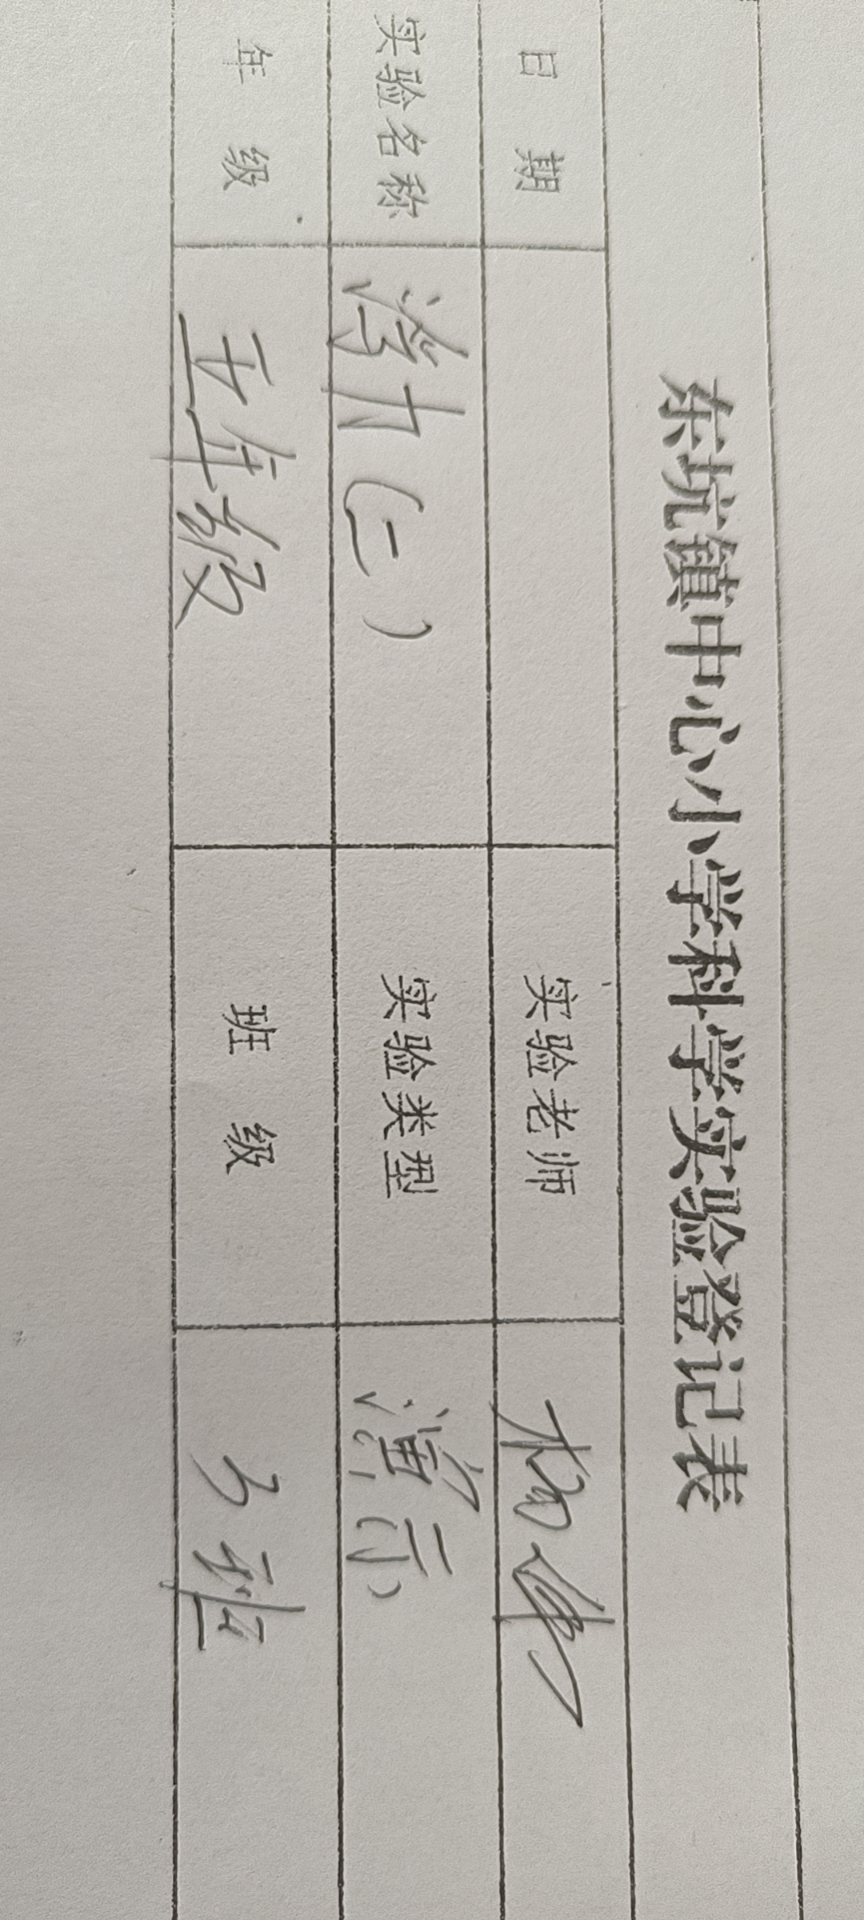 东坑镇中心小学科学实验登记表
日 期 实验老师 杨
实验名称 浮力(二) 实验类型 演示
年 级 五年级 班 级 3班